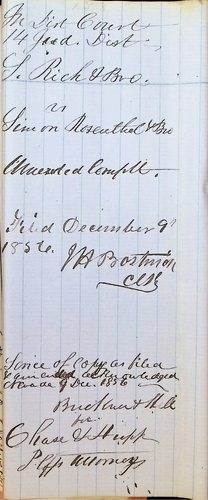 In Dist Court
14 Jud. Dist
S. Rich & Bro.
vs
Simon Rosenthal & Bro
Amended Complt.
Filed December 9th
1856.
Bostwick
Clk
Service of Copy as filed
acknowledged
Dec. 1856
Buckner & Hill
for
Chase &
Plffs Attorneys